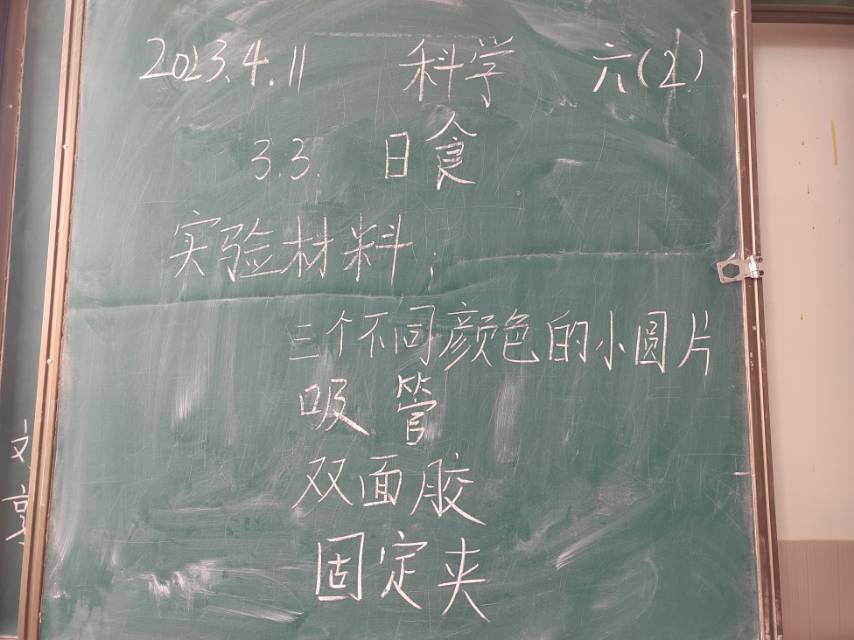 2023.4.11 科学 六(2)
3.3. 日食
实验材料:
三个不同颜色的小圆片
吸管
双面胶
固定夹